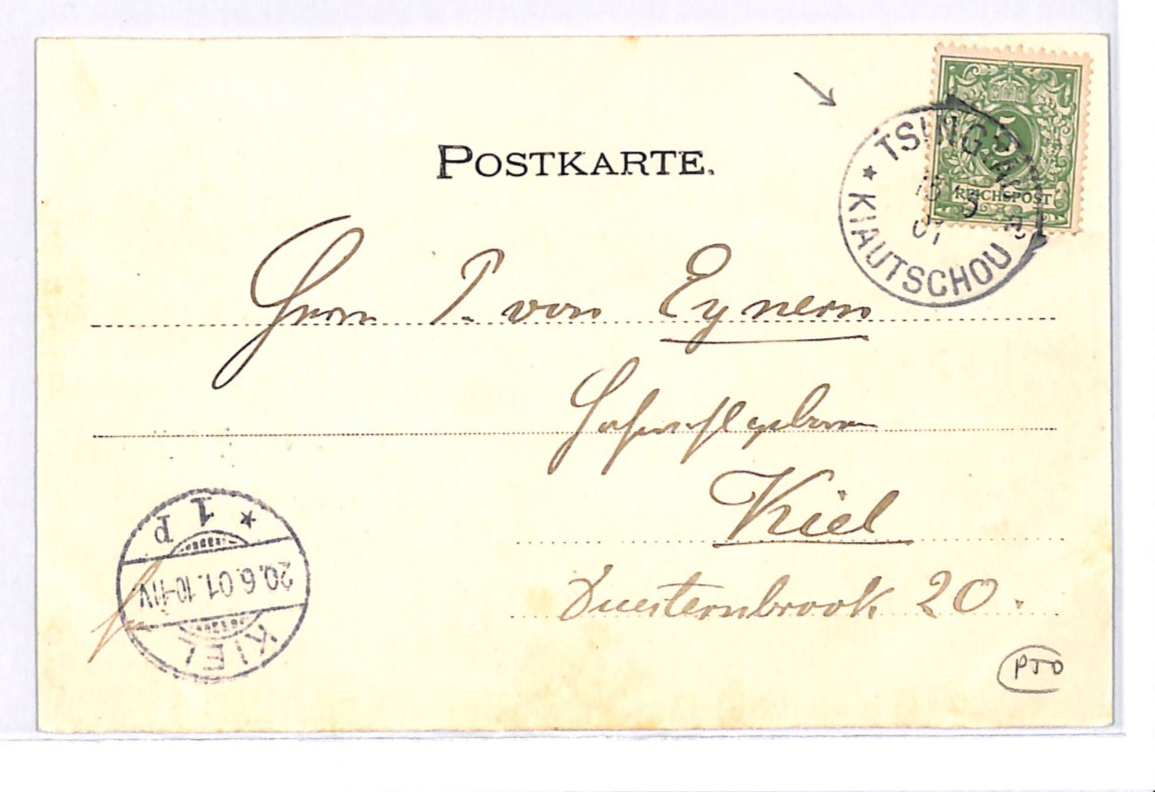 POSTKARTE.
5
REICHSPOST
TSINGTAU
KIAUTSCHOU
01
Herrn P. von Eynern
Hochwohlgeboren
Kiel
Duesternbrook 20.
KIEL
20.6.01.10-11V.
* 1 P
PTO